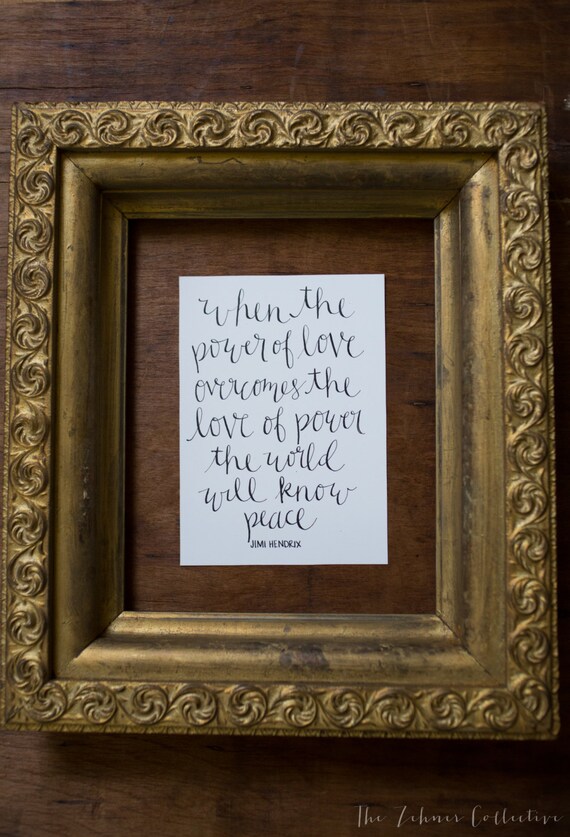 when the
power of love
overcomes the
love of power
the world
will know
peace
JIMI HENDRIX
The Zehner Collective